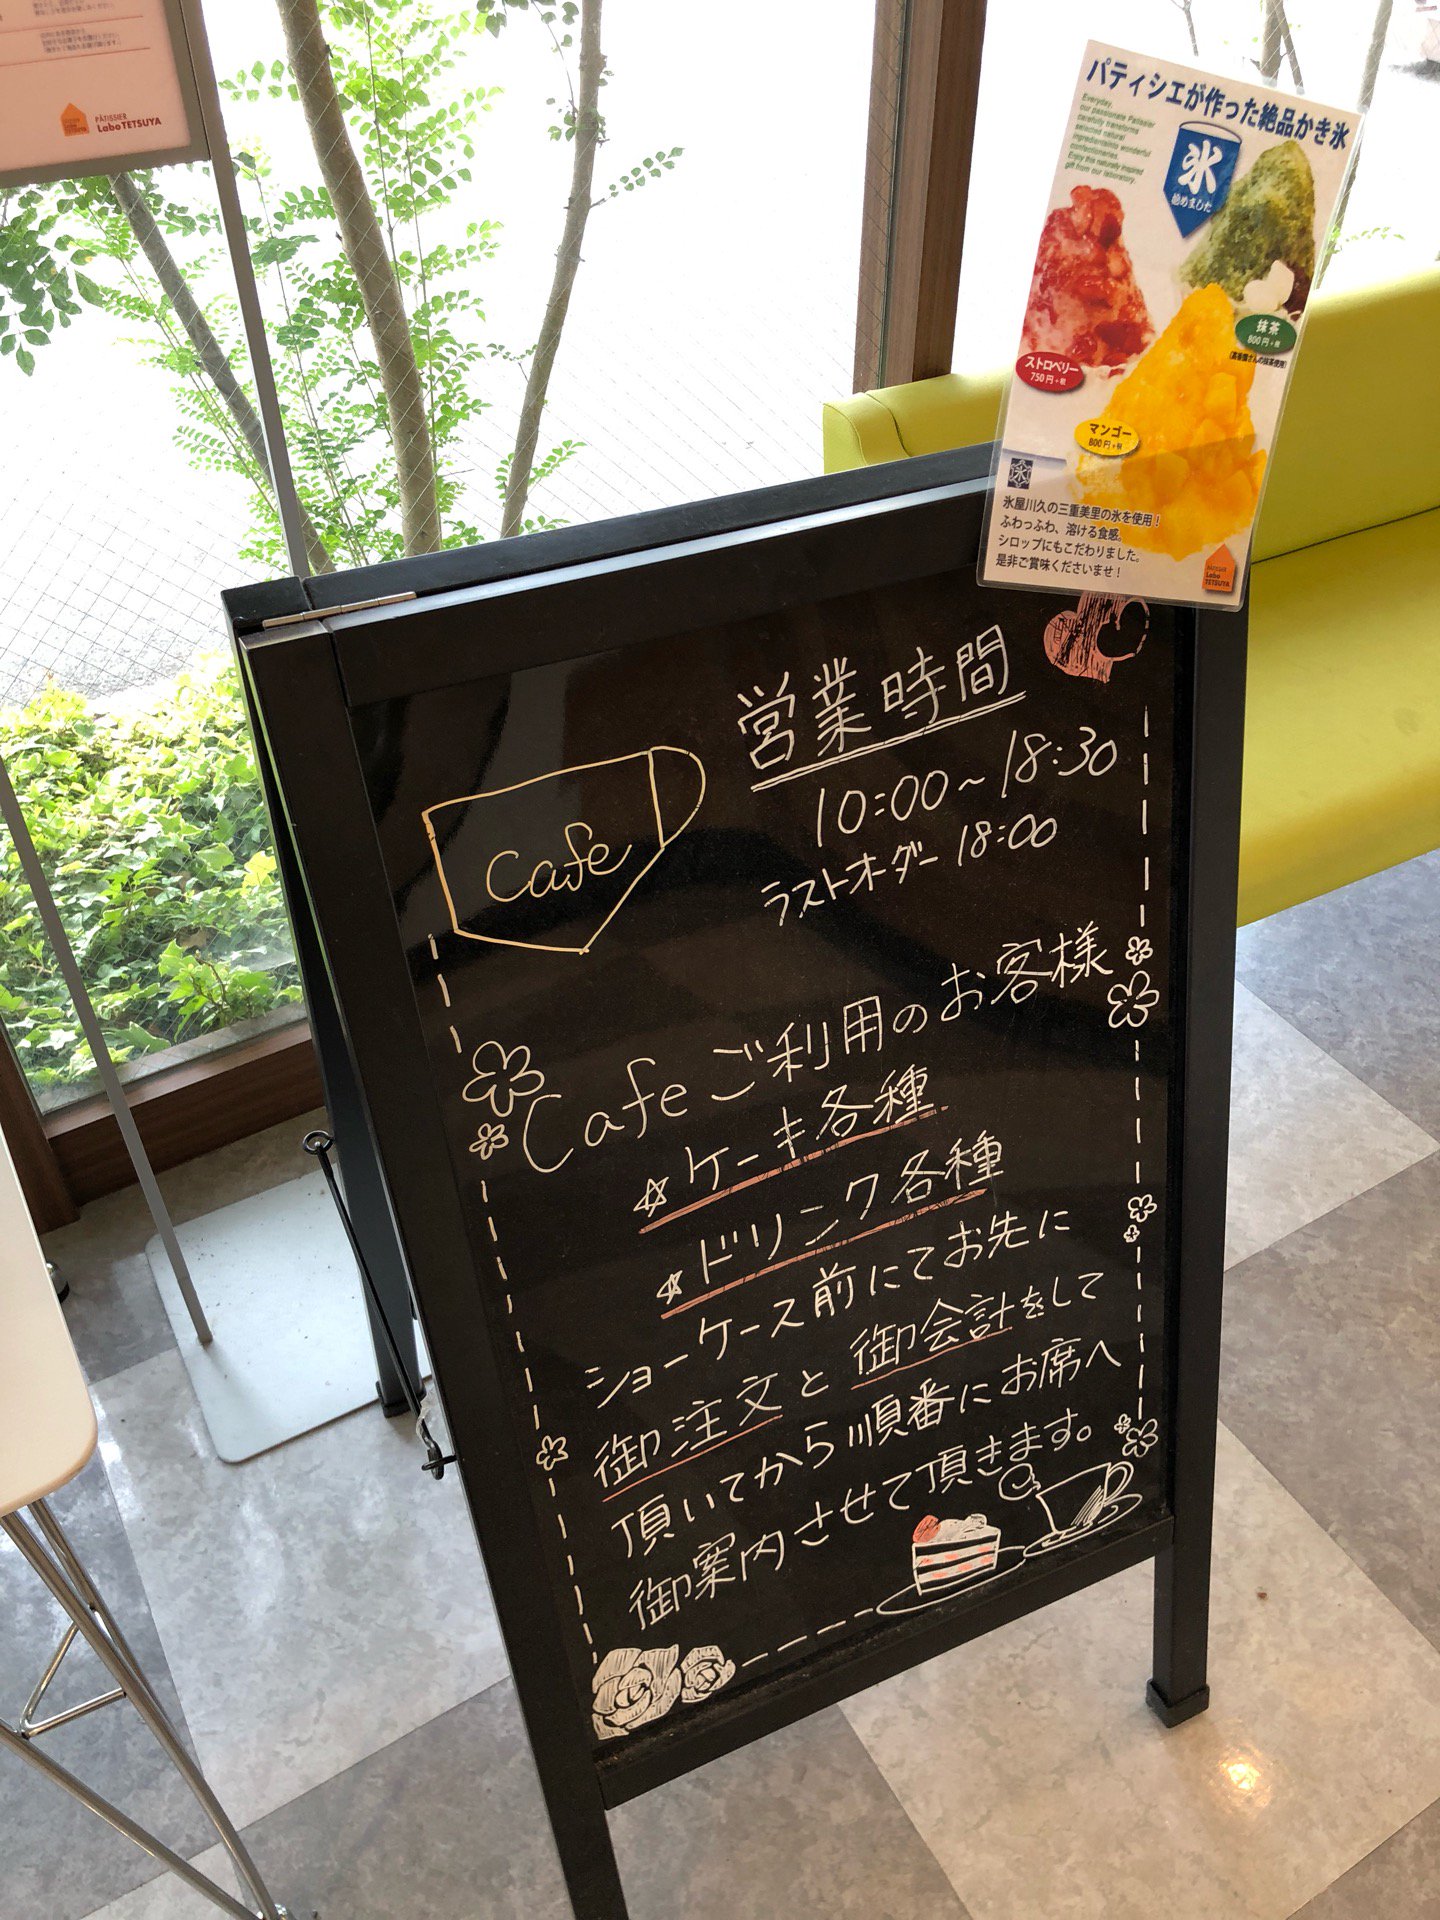 PÂTISSIER
Labo TETSUYA
パティシエが作った絶品かき氷
Everyday,
our passionate Patissier
carefully transforms
selected natural
ingredientsinto wonderful
confectioneries.
Enjoy this naturally inspired
gift from our laboratory.
氷
始めました
抹茶
800円+税
ストロベリー
750円+税
マンゴー
800円+税
氷屋川久の三重美里の氷を使用！
ふわっふわ、溶ける食感。
シロップにもこだわりました。
是非ご賞味くださいませ！
PÂTISSIER
Labo
TETSUYA
営業時間
10:00～18:30
ラストオーダー 18:00
Cafe
Cafeご利用のお客様
☆ケーキ各種
☆ドリンク各種
ショーケース前にてお先に
御注文と御会計をして
頂いてから順番にお席へ
御案内させて頂きます。